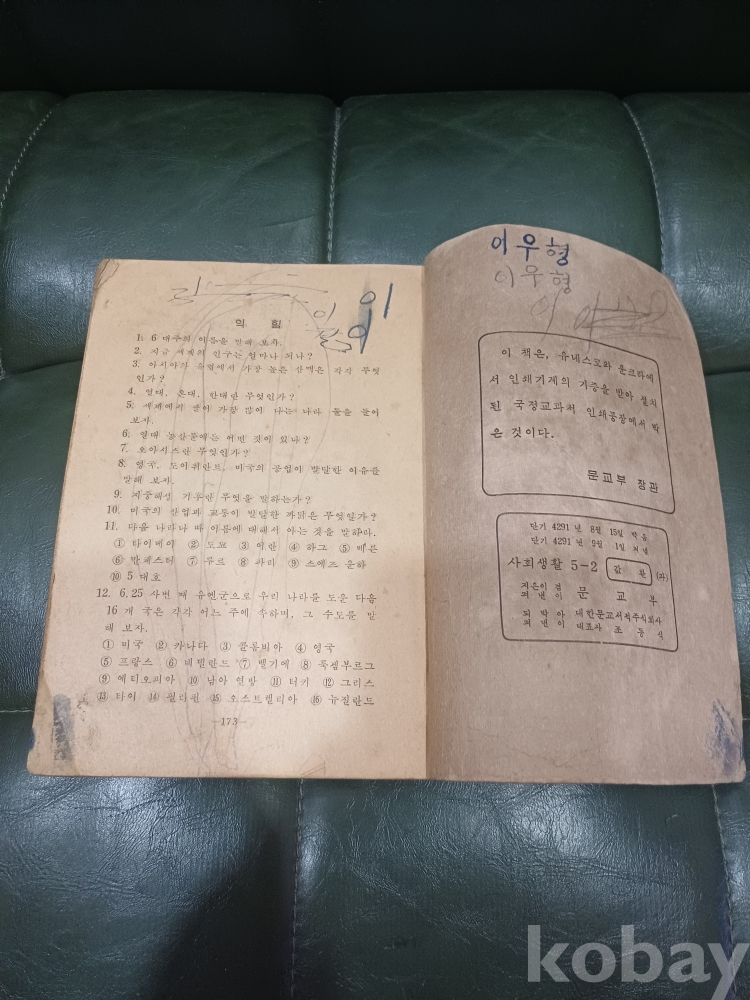 이
이
익 힘
1. 6 대주의 이름을 말해 보자.
2. 지금 세계의 인구는 얼마나 되나?
3. 아시아와 유럽에서 가장 높은 산맥은 각각 무엇
인가?
4. 열대, 온대, 한대란 무엇인가?
5. 세계에서 쌀이 가장 많이 나는 나라 둘을 들어
보자.
6. 열대 농산물에는 어떤 것이 있나?
7. 오아시스란 무엇인가?
8. 영국, 도이취란트, 미국의 공업이 발달한 이유를
말해 보자.
9. 지중해성 기후란 무엇을 말하는가?
10. 미국의 산업과 교통이 발달한 까닭은 무엇일가?
11. 다음 나라나 땅 이름에 대해서 아는 것을 말하라.
① 타이베이 ② 도꾜 ③ 이란 ④ 하그 ⑤ 베른
⑥ 맨체스터 ⑦ 루르 ⑧ 파리 ⑨ 스에즈 운하
⑩ 5 대호
12. 6.25 사변 때 유엔군으로 우리 나라를 도운 다음
16 개 국은 각각 어느 주에 속하며, 그 수도를 말
해 보자.
① 미국 ② 카나다 ③ 콜롬비아 ④ 영국
⑤ 프랑스 ⑥ 네델란드 ⑦ 벨기에 ⑧ 룩셈부르그
⑨ 에디오피아 ⑩ 남아 연방 ⑪ 터키 ⑫ 그리스
⑬ 타이 ⑭ 필리핀 ⑮ 오스트렐리아 ⑯ 뉴질란드
—173—
이우형
이우형
이
이 책은, 유네스코와 운크라에
서 인쇄기계의 기증을 받아 설치
된 국정교과서 인쇄공장에서 박
은 것이다.
문교부 장관
단기 4291 년 8월 15일 박음
단기 4291 년 9월 1일 펴냄
사회생활 5-2 값 환
지은이 겸
펴낸이 문 교 부
대한문교서적주식회사
대표자 조 동 식
kobay